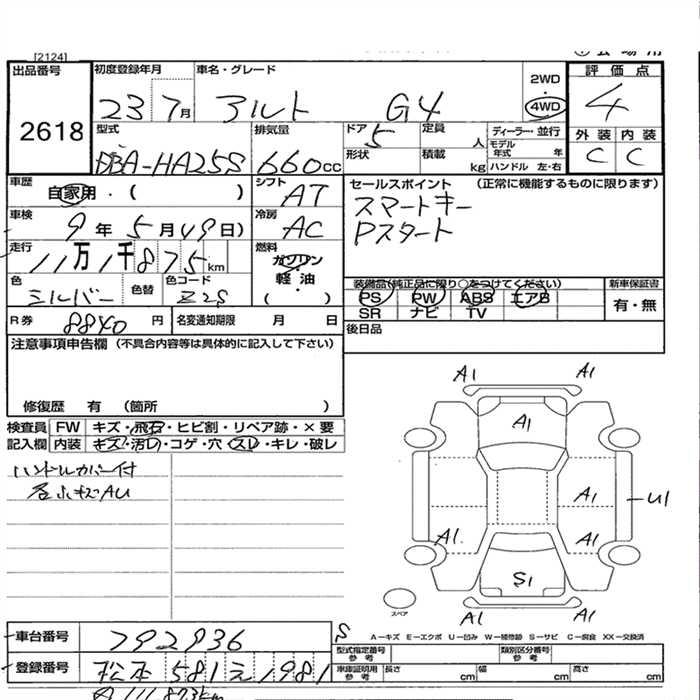 [2124]
出品番号 2618
初度登録年月 23 7月
車名・グレード アルト G4
2WD
4WD
評価点 4
外装 内装
C C
型式 DBA-HA25S
排気量 660cc
ドア 5
定員 人
形状
積載 kg
ディーラー・並行
モデル年式 年
ハンドル 左・右
車歴 自家用・( )
シフト AT
車検 9年5月19日)
冷房 AC
走行 11万1千875km
燃料 ガソリン・軽油・( )
色 シルバー
色替
色コード Z2S
R券 8840円
名変通知期限 月 日
セールスポイント (正常に機能するものに限ります)
スマートキー
Pスタート
装備品(純正品に限り○をつけてください)
PS PW ABS エアB
SR ナビ TV
新車保証書
有・無
後日品
注意事項申告欄 (不具合内容等は具体的に記入して下さい)
修復歴 有 (箇所 )
検査員記入欄
FW キズ・飛石・ヒビ割・リペア跡・×要
内装 キズ・汚レ・コゲ・穴・スレ・キレ・破レ
ハンドルカバー付
A1 A1
A1
A1 U1
A1 A1
S1
A1 A1
スペア
A－キズ E－エクボ U－凹み W－補修跡 S－サビ C－腐食 XX－交換済
車台番号 792936
登録番号 松本 581 え 1981
型式指定番号 参考
類別区分番号 参考
車庫証明用 参考 長さ cm 幅 cm 高さ cm